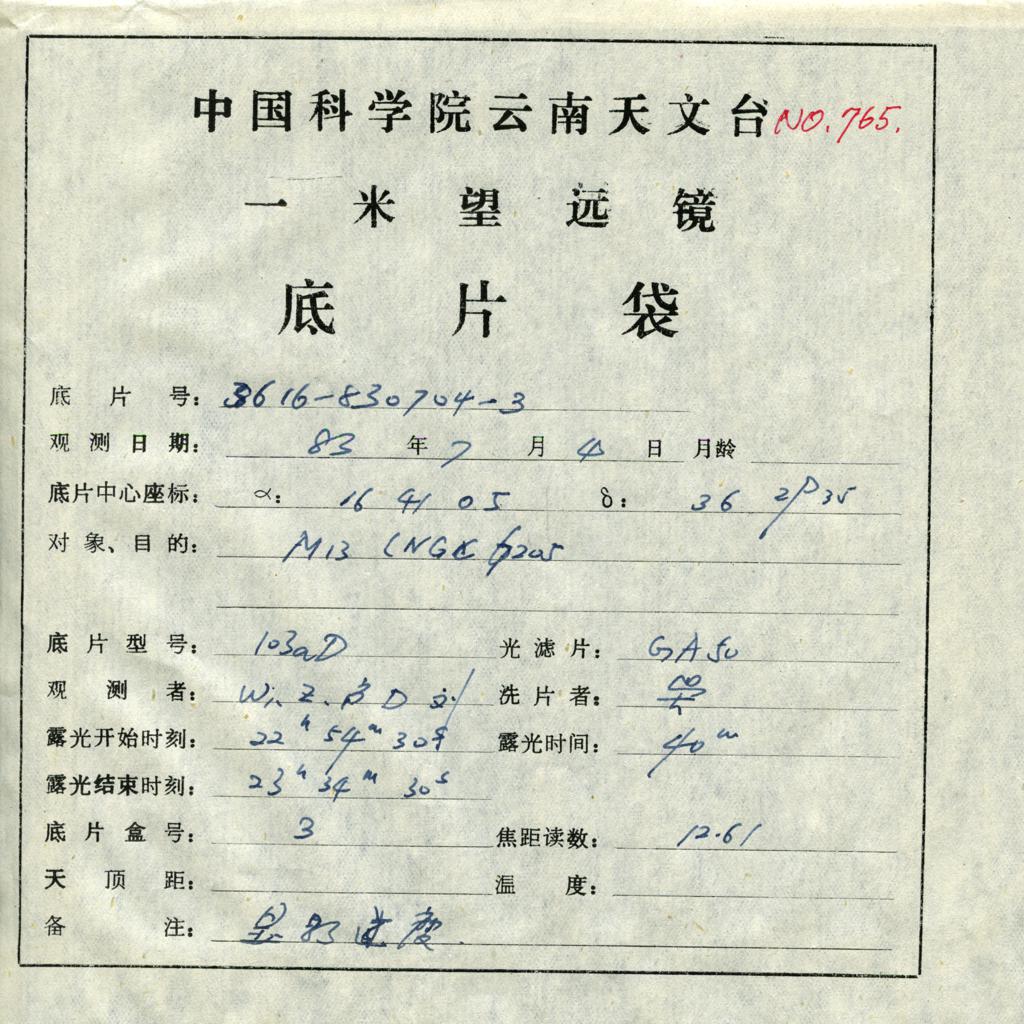 中国科学院云南天文台 NO.765.
一米望远镜
底片袋
底片号: 3616-830704-3
观测日期: 83 年 7 月 4 日 月龄
底片中心座标: α: 16 41 05 δ: 36 28 35
对象、目的: M13 (NGC 6205
底片型号: 103aD 光滤片: GA50
观测者: W. Z. D 洗片者:
露光开始时刻: 22h 54m 30s 露光时间: 40m
露光结束时刻: 23h 34m 30s
底片盒号: 3 焦距读数: 12.61
天顶距: 温度:
备注: